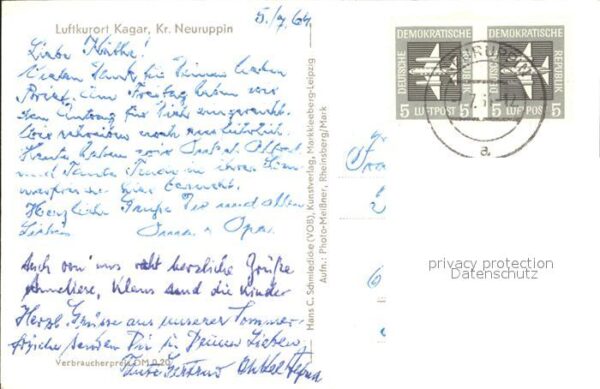 5./7.64.
Luftkurort Kagar, Kr. Neuruppin
Liebe Käthe!
Vielen Dank für Deinen lieben
Brief. Am Freitag haben wir
den Antrag für Dich
Wir schreiben noch ausführlich.
Heute haben wir Onkel Alfred
und Tante in ihrer
hier besucht.
Herzliche Grüße Dir und allen
Lieben Oma u. Opa.
Auch von uns recht herzliche Grüße
Anneliese, Klaus und die Kinder
Herzl. Grüsse aus unserer Sommer-
frische senden Dir u. Deinen Lieben,
Tante Onkel Alfred
Verbraucherpreis DM 0,20
Hans C. Schmiedicke (VOB), Kunstverlag, Markkleeberg-Leipzig
Aufn.: Photo-Meißner, Rheinsberg/Mark
DEUTSCHE DEMOKRATISCHE REPUBLIK
5 LUFTPOST 5
DEUTSCHE DEMOKRATISCHE REPUBLIK
5 LUFTPOST 5
NEURUPPIN
a
privacy protection
Datenschutz